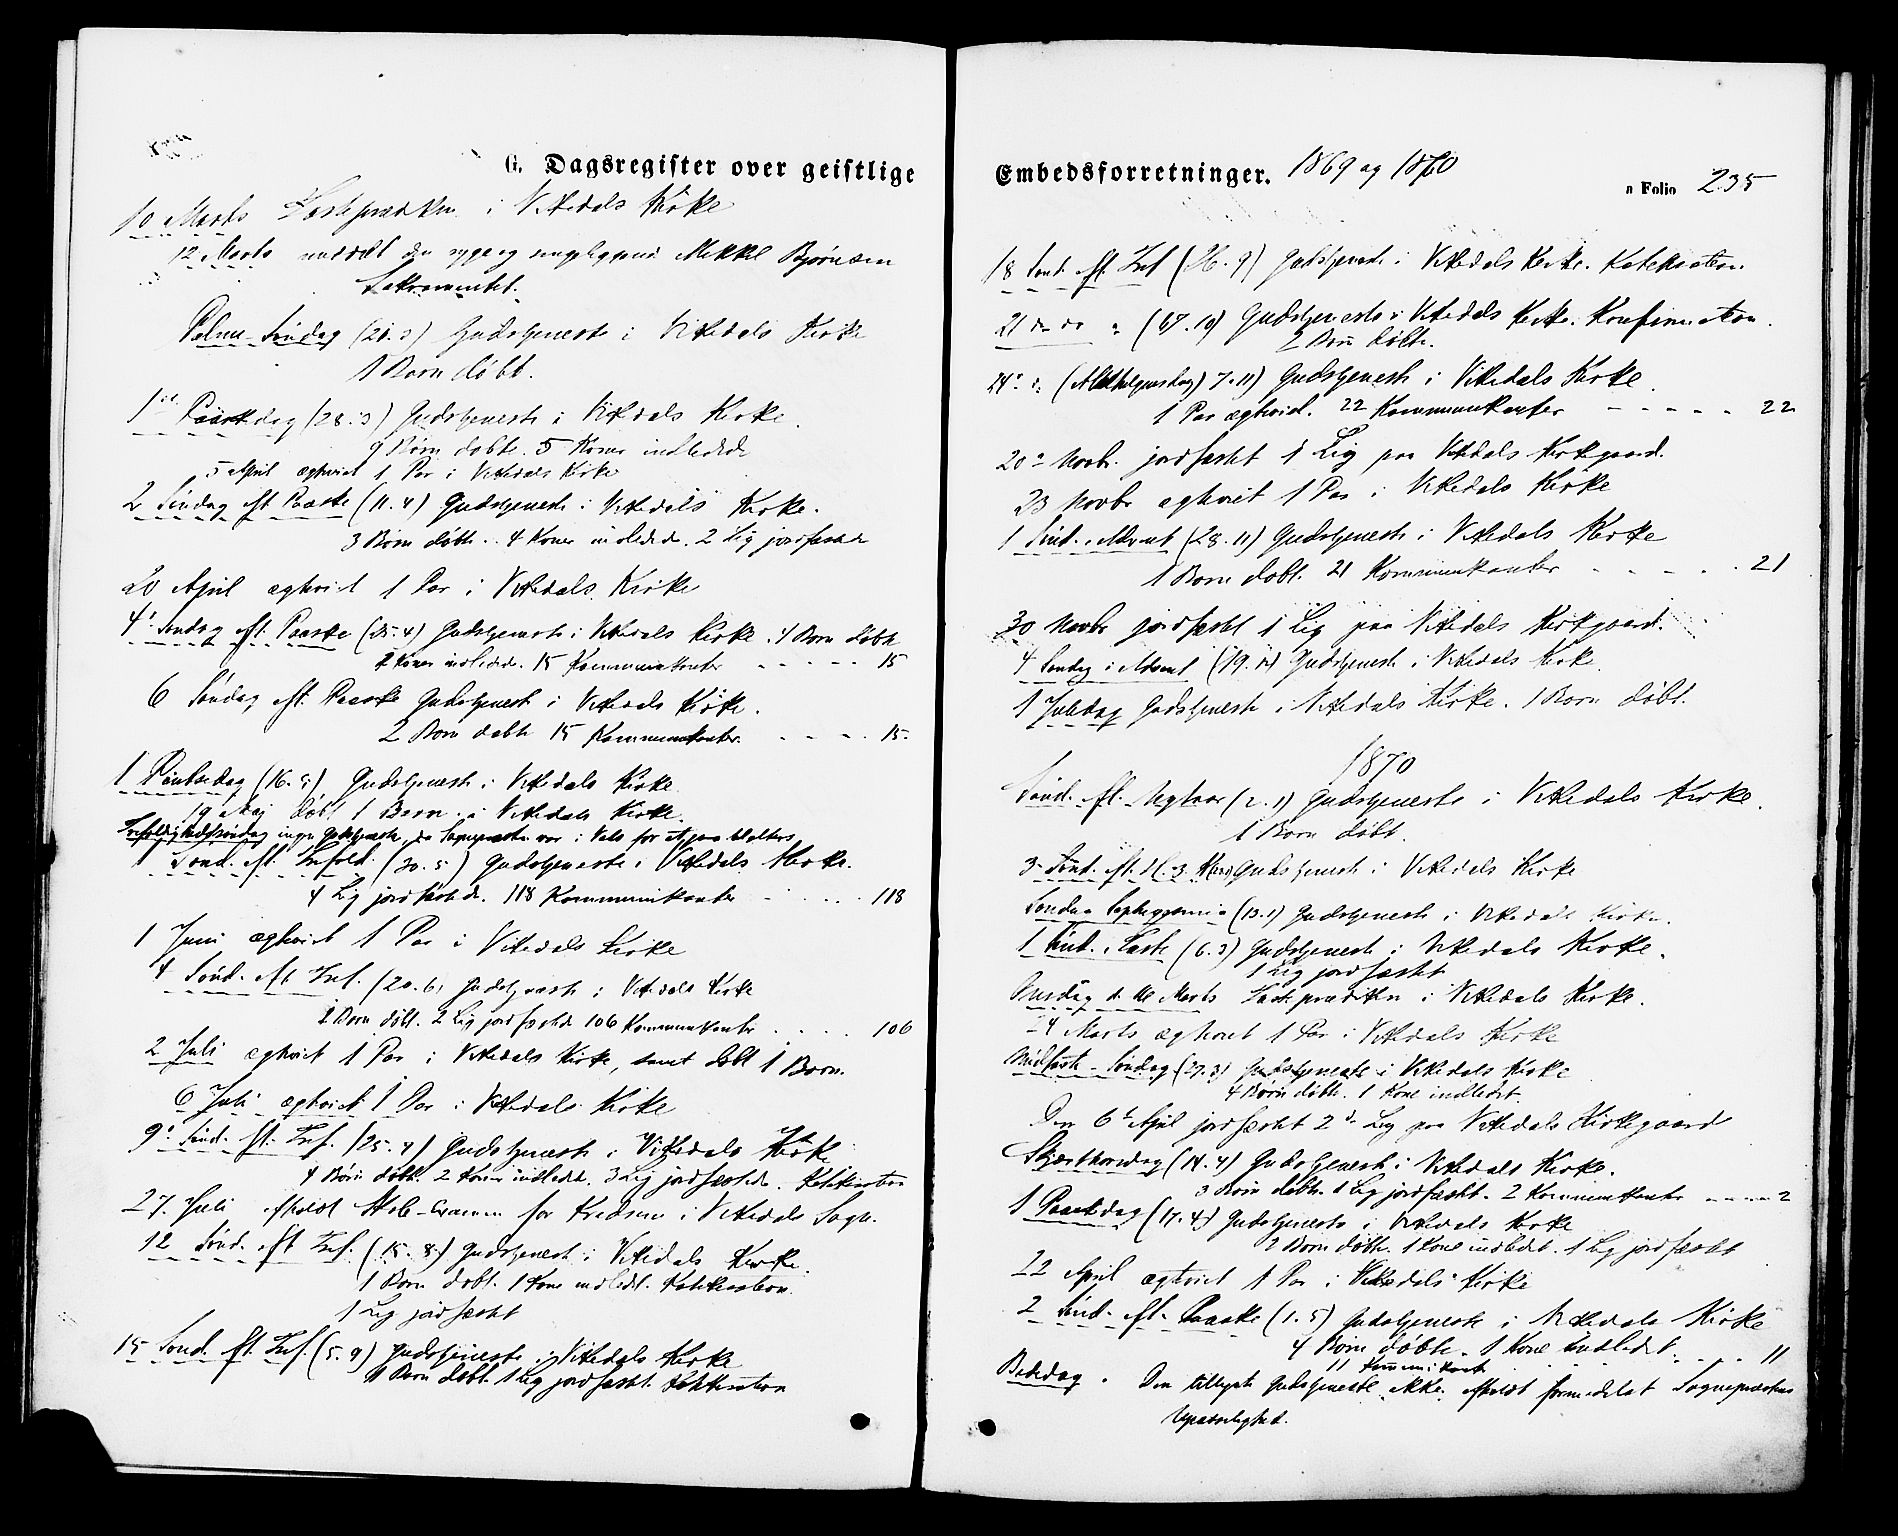 G. Dagsregister over geistlige
10 Marts Fasteprædiken i Vikedals Kirke
12 Marts meddelt den syge og sengeliggende Mikkel Bjørnsen
Sakramentet.
Palme-Søndag (21.3) Gudstjeneste i Vikedals Kirke
1 Barn døbt.
1ste Paaskedag (28.3) Gudstjeneste i Vikedals Kirke.
9 Børn døbte. 5 Koner indledede
5 April ægteviet 1 Par i Vikedals Kirke
2 Søndag eft. Paaske (11.4) Gudstjeneste i Vikedals Kirke.
3 Børn døbte. 4 Koner indledede. 2 Lig jordfæstede
20 April ægteviet 1 Par i Vikedals Kirke
4. Søndag eft. Paaske (25.4) Gudstjeneste i Vikedals Kirke. 4 Børn døbte
2 Koner indledede. 15 Kommunikanter - - - - - 15
6 Søndag eft. Paaske Gudstjeneste i Vikedals Kirke.
2 Børn døbte 15 Kommunikanter. - - - - 15.
1 Pintsedag (16.5) Gudstjeneste i Vikedals Kirke.
19 Maj døbt 1 Barn i Vikedals Kirke.
Trefoldighedssøndag ingen Gudstjeneste, da Sognepræsten var i
1 Sønd. eft. Trefold. (30.5) Gudstjeneste i Vikedals Kirke.
4 Lig jordfæstede. 118 Kommunikanter - - . . . 118
1 Juni ægteviet 1 Par i Vikedals Kirke
4 Sønd. eft. Tref. (20.6) Gudstjeneste i Vikedals Kirke
2 Børn døbt. 2 Lig jordfæstede 106 Kommunikanter . . . . 106
2 Juli ægteviet 1 Par i Vikedals Kirke, samt døbt 1 Barn.
6 Juli ægteviet 1 Par i Vikedals Kirke
9. Sønd. eft. Tref. (25.7) Gudstjeneste i Vikedals Kirke
4 Børn døbt. 2 Koner indledet. 3 Lig jordfæstede. Katekisation
27. Juli afholdt Skole-Examen for Kredsene i Vikedals Sogn.
12 Sønd. eft Tref. (15.8) Gudstjeneste i Vikedals Kirke.
1 Barn døbt. 1 Kone indledt. Katekisation.
1 Lig jordfæstet
15 Sønd. eft. Tref. (5.9) Gudstjeneste i Vikedals Kirke
Børn døbt. 1 Lig jordfæstet. Katekisation
Embedsforretninger. 1869 og 1870
n Folio 235
18 Sønd. eft. Tref (26.9) Gudstjeneste i Vikedals Kirke. Katekisation.
21 do do " (17.10) Gudstjeneste i Vikedals Kirke. Konfirmation.
2 Børn døbte.
24. " (Allehelgensdag) 7.11) Gudstjeneste i Vikedals Kirke.
1 Par ægteviet. 22 Kommunikanter - - - - - 22
20. Novbr. jordfæstet 1 Lig paa Vikedals Kirkgaard.
23 Novbr ægteviet 1 Par i Vikedals Kirke
1 Sønd. i Advent (28.11) Gudstjeneste i Vikedals Kirke
1 Barn døbt. 21 Kommunikanter - - - - - 21
30 Novbr jordfæstet 1 Lig paa Vikedals Kirkgaard.
4 Søndag i Advent (19.12) Gudstjeneste i Vikedals Kirke.
1 Juledag Gudstjeneste i Vikedals Kirke. 1 Barn døbt.
1870
Sønd. eft. Nytaar (2.1) Gudstjeneste i Vikedals Kirke.
1 Barn døbt.
3. Sønd. eft. H. 3. Gudstjeneste i Vikedals Kirke
Søndag Septuagesima (13.2) Gudstjeneste i Vikedals Kirke.
1 Sønd. i Faste (6.3) Gudstjeneste i Vikedals Kirke.
1 Lig jordfæstet
Onsdag d. 16 Marts Fasteprædiken i Vikedals Kirke.
Marts ægteviet 1 Par i Vikedals Kirke
Midfaste-Søndag (27.3) Gudstjeneste i Vikedals Kirke
4 Børn døbte. 1 Kone indledet.
Den 6te April jordfæstet 2de Lig paa Vikedals Kirkegaard
Skjærthorsdag (14.4) Gudstjeneste i Vikedals Kirke.
3 Børn døbte. 1 Lig jordfæstet. 2 Kommunikanter - - - - 2
1 Paaskedag (17.4) Gudstjeneste i Vikedals Kirke
2 Børn døbte. 1 Kone indledet. 1 Lig jordfæstet
22 April ægteviet 1 Par i Vikedals Kirke
2 Sønd. eft. Paaske (1.5) Gudstjeneste i Vikedals Kirke
4 Børn døbte. 1 Kone indledet. - . - . 11
11 Kommunikanter
Bededag. Den tillyste Gudstjeneste ikke afholdt formedelst Sognepræstens
Upasselighed.